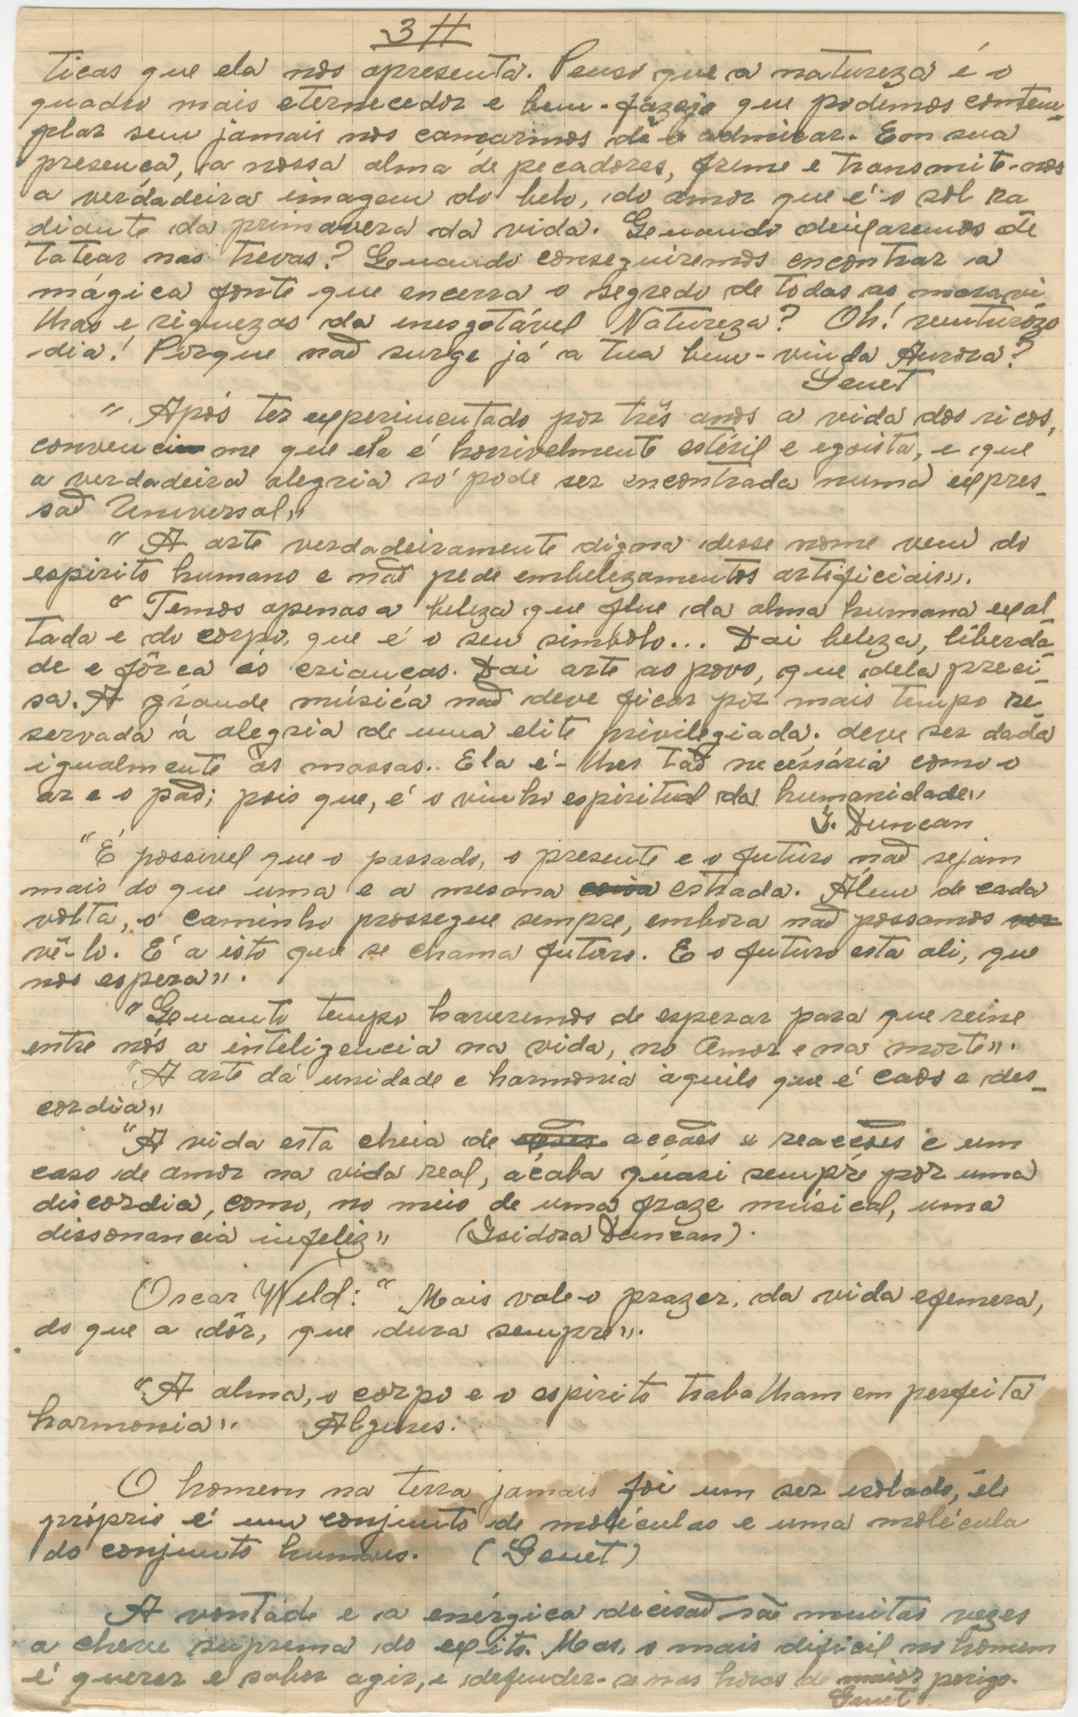 3 H
ticas que ela nos apresenta. Penso que a natureza é o
quadro mais eternecedor e bem-fazejo que podemos contem-
plar sem jamais nos cansarmos de a admirar. Em sua
presença, a nossa alma de pecadores, freme e transmite-nos
a verdadeira imagem do belo, do amor que é o sol ra
diante da primavera da vida. Quando deixaremos de
tatear nas trevas? Quando conseguiremos encontrar a
mágica fonte que encerra o segredo de todas as maravi-
lhas e riquezas da inesgotável Natureza? Oh! venturozo
dia! Porque não surge já a tua bem-vinda Aurora?
Genet
" Após ter experimentado por três anos a vida dos ricos,
convenci me que ela é horrivelmente estéril e egoista, e que
a verdadeira alegria só pode ser encontrada numa expres-
são Universal"
" A arte verdadeiramente digna desse nome vem do
espirito humano e não pede embelezamentos artificiais".
" Temos apenas a beleza que flue da alma humana exal
tada e do corpo que é o seu simbolo... Dai beleza, liberda-
de e fôrça ás crianças. Dai arte ao povo, que dela preci-
sa. A grande música não deve ficar por mais tempo re-
servada á alegria de uma elite privilegiada. deve ser dada
igualmente ás massas. Ela é-lhes tão necéssária como o
ar e o pão; pois que, é o vinho espiritual da humanidade"
I. Duncan
"É possivel que o passado, o presente e o futuro não sejam
mais do que uma e a mesma coisa estrada. Álem de cada
volta, o caminho prossegue sempre, embora não possamos ver
vê-lo. É a isto que se chama futuro. E o futuro esta ali, que
nos espera".
"Quanto tempo haveremos de esperar para que reine
entre nós a inteligencia na vida, no Amor e na morte".
"A arte dá unidade e harmonia àquilo que é caos e des-
cordia"
"A vida esta cheia de acções e reacções e um
caso de amor na vida real, acaba quási sempre por uma
discordia, como, no meio de uma fraze músical, uma
dissonancia infeliz" (Isidora Duncan).
Oscar Wild: " Mais vale o prazer, da vida efemera,
do que a dôr, que dura sempre".
"A alma, o corpo e o espirito trabalham em perfeita
harmonia".
O homem na terra jamais foi um ser isolado, êle
próprio é um conjunto de moléculas e uma molécula
do conjunto humano. (Genet)
A vontade e a enérgica decisão são muitas vezes
a chave suprema do exito. Mas, o mais dificil no homem
é querer e saber agir, e defender-se nas horas de maior perigo.
Genet